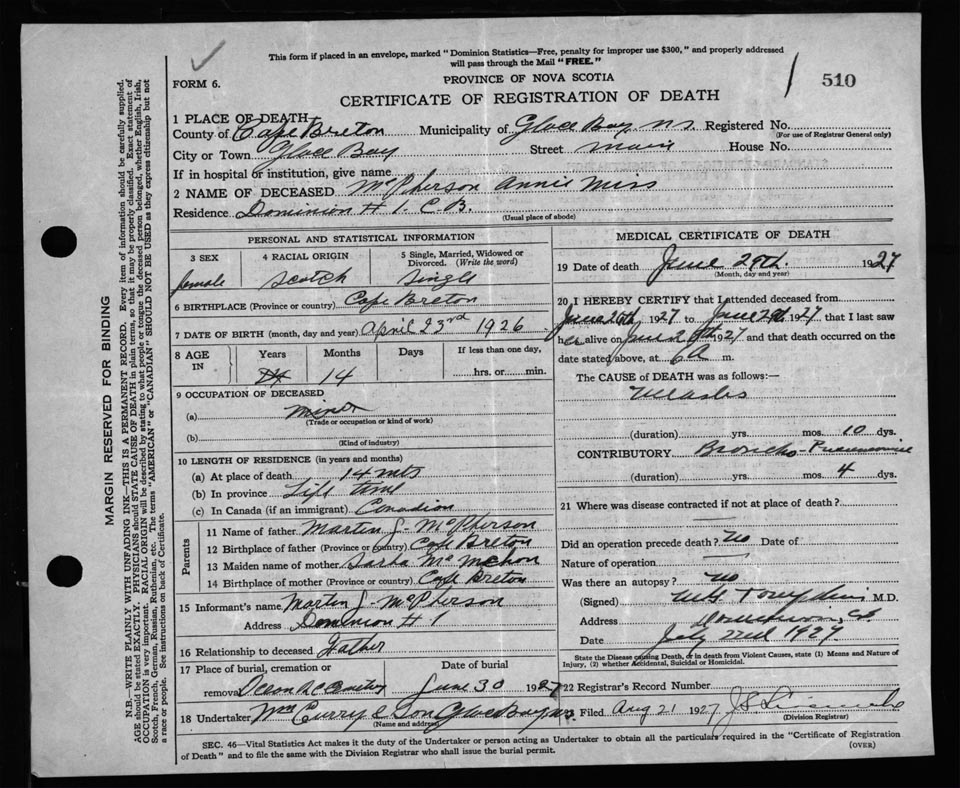 This form if placed in an envelope, marked "Dominion Statistics—Free, penalty for improper use $300," and properly addressed
will pass through the Mail "FREE."
FORM 6.
PROVINCE OF NOVA SCOTIA
510
CERTIFICATE OF REGISTRATION OF DEATH
1 PLACE OF DEATH
County of Cape Breton Municipality of Glace Bay N.S. Registered No.
(For use of Registrar General only)
City or Town Glace Bay Street Main House No.
If in hospital or institution, give name
2 NAME OF DECEASED McPherson Annie Miss
Residence Dominion # 1. C.B.
(Usual place of abode)
PERSONAL AND STATISTICAL INFORMATION
3 SEX 4 RACIAL ORIGIN 5 Single, Married, Widowed or
Divorced. (Write the word)
female Scotch Single
6 BIRTHPLACE (Province or country) Cape Breton
7 DATE OF BIRTH (month, day and year) April 23rd 1926
8 AGE IN Years Months Days If less than one day,
14 hrs. or min.
9 OCCUPATION OF DECEASED
(a) Minor
(Trade or occupation or kind of work)
(b)
(Kind of industry)
10 LENGTH OF RESIDENCE (in years and months)
(a) At place of death 14 mts
(b) In province Life time
(c) In Canada (if an immigrant) Canadian
Parents
11 Name of father Martin J. McPherson
12 Birthplace of father (Province or country) Cape Breton
13 Maiden name of mother Mc
14 Birthplace of mother (Province or country) Cape Breton
15 Informant's name Martin J. McPherson
Address Dominion # 1
16 Relationship to deceased Father
17 Place of burial, cremation or Date of burial
removal June 30 1927
18 Undertaker Wm Curry & Son Glace Bay N.S.
(Name and address)
MEDICAL CERTIFICATE OF DEATH
19 Date of death June 29th. 1927
(Month, day and year)
20 I HEREBY CERTIFY that I attended deceased from
June 26th 1927 to June 29th 1927 that I last saw
her alive on June 1927 and that death occurred on the
date stated above, at 6 A m.
The CAUSE of DEATH was as follows:—
Measles
(duration) yrs. mos. 10 dys.
CONTRIBUTORY Broncho-Pneumonia
(duration) yrs. mos. 4 dys.
21 Where was disease contracted if not at place of death?
Did an operation precede death? No Date of
Nature of operation
Was there an autopsy? No
(Signed) M.D.
Address Dominion, C.B.
Date July 22nd 1927
State the Disease causing Death, or in death from Violent Causes, state (1) Means and Nature of
Injury, (2) whether Accidental, Suicidal or Homicidal.
22 Registrar's Record Number
Filed Aug 21 1927
(Division Registrar)
SEC. 46—Vital Statistics Act makes it the duty of the Undertaker or person acting as Undertaker to obtain all the particulars required in the "Certificate of Registration
of Death" and to file the same with the Division Registrar who shall issue the burial permit.
(OVER)
MARGIN RESERVED FOR BINDING
N.B.—WRITE PLAINLY WITH UNFADING INK—THIS IS A PERMANENT RECORD. Every item of information should be carefully supplied.
AGE should be stated EXACTLY. PHYSICIANS should STATE CAUSE OF DEATH in plain terms, so that it may be properly classified. Exact statement of
OCCUPATION is very important. RACIAL ORIGIN will be described by stating to what people or tongue the deceased person belonged, whether English, Irish,
Scotch, French, German, Russian, Ruthenian, etc. The terms "AMERICAN" or "CANADIAN" SHOULD NOT BE USED as they express citizenship but not
a race or people. See instructions on back of Certificate.